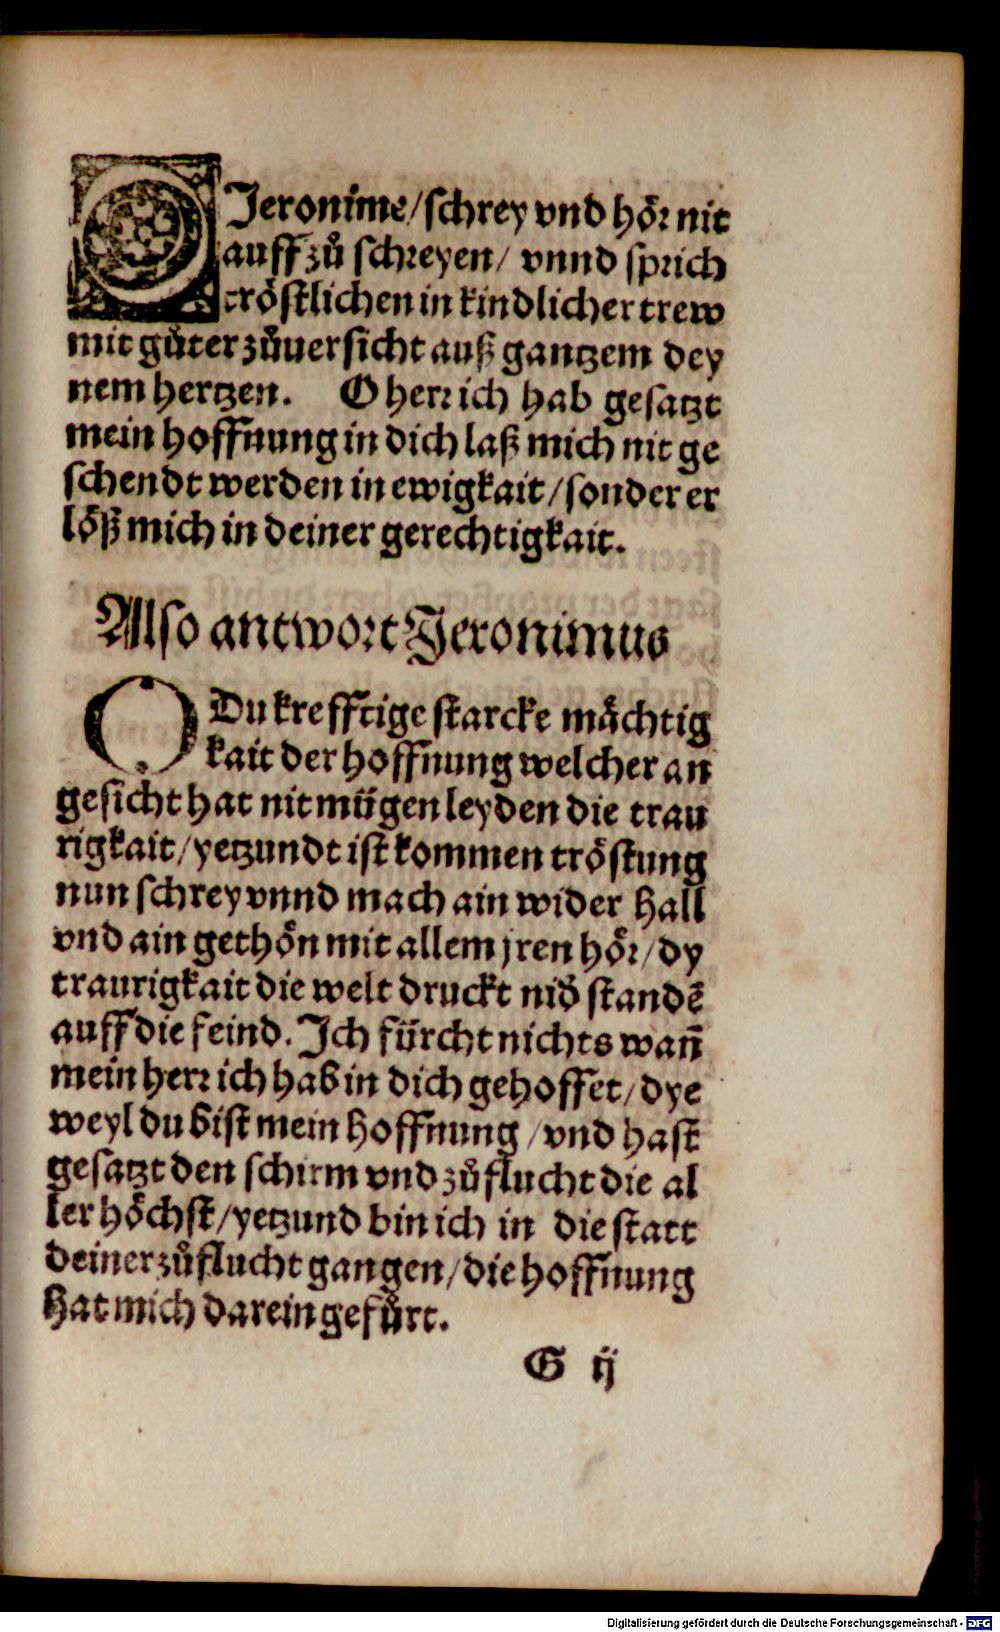 O Jeronime/schrey vnd hoͤr nit
auff zuͦ schreyen/ vnnd sprich
troͤstlichen in kindlicher trew
mit guͦter zuͦuersicht auß gantzem dey
nem hertzen. O herr ich hab gesatzt
mein hoffnung in dich laß mich nit ge
schendt werden in ewigkait/sonder er
loͤß mich in deiner gerechtigkait.
Also antwort Jeronimus
O Du krefftige starcke maͤchtig
kait der hoffnung welcher an
gesicht hat nit muͤgen leyden die trau
rigkait/yetzundt ist kommen troͤstung
nun schrey vnnd mach ain wider hall
vnd ain gethoͤn mit allem jren hoͤr/dy
traurigkait die welt druckt nid̕ standē
auff die feind. Ich fuͤrcht nichts wan̄
mein herr ich hab in dich gehoffet/dye
weyl du bist mein hoffnung/vnd hast
gesatzt den schirm vnd zuͦflucht die al
ler hoͤchst/yetzund bin ich in die statt
deiner zuͦflucht gangen/die hoffnung
hat mich darein gefuͤrt.
G ij
Digitalisierung gefördert durch die Deutsche Forschungsgemeinschaft - DFG